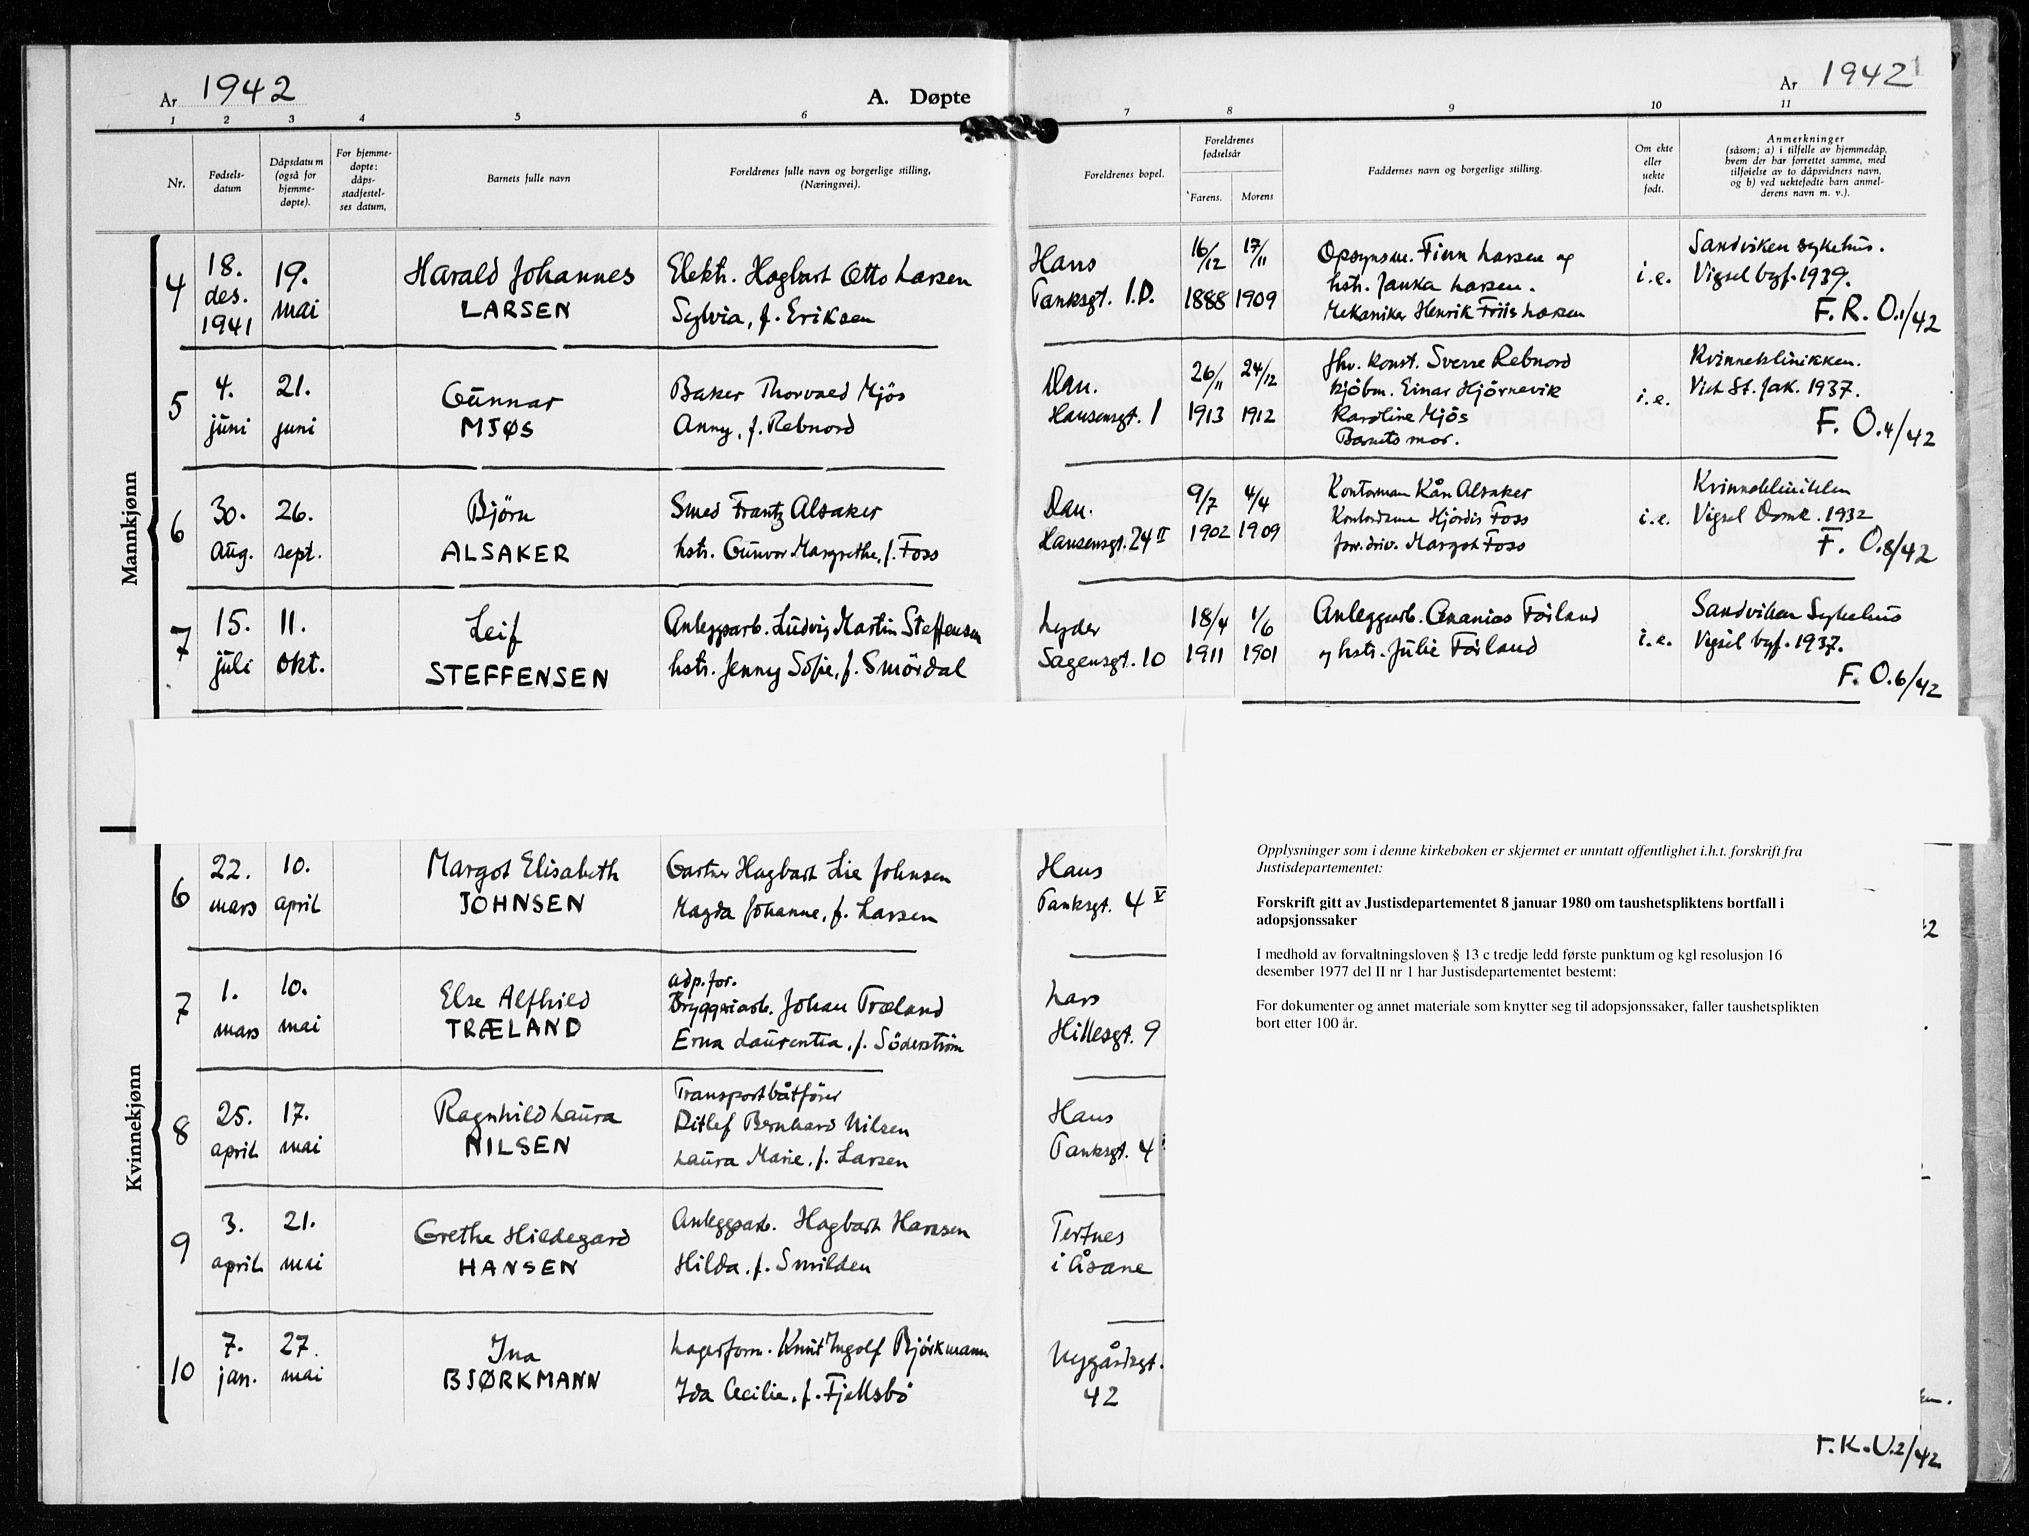 År 1942
A. Døpte
År 1942
1 2 3 4 5 6 7 8 9 10 11
Nr.
Fødsels-
datum
Dåpsdatum
(også for
hjemme-
døpte).
For hjemme-
døpte:
dåps-
stadfestel-
ses datum.
Barnets fulle navn
Foreldrenes fulle navn og borgerlige stilling,
(Næringsvei).
Foreldrenes bopel.
Foreldrenes
fødselsår
Farens.
Morens
Faddernes navn og borgerlige stilling.
Om ekte
eller
uekte
født.
Anmerkninger
(såsom; a) i tilfelle av hjemmedåp,
hvem der har forrettet samme, med
tilføielse av to dåpsvidners navn,
og b) ved uektefødte barn anmel-
derens navn m. v.).
Mannkjønn
4
18.
des.
1941
19.
mai
Harald Johannes
LARSEN
Elektr. Hagbart Otto Larsen
Sylvia, f. Eriksen
Hans
Tanksgt. 1.D.
16/12
1888
17/11
1909
Opsynsm. Finn Larsen og
hstr. Janka Larsen.
Mekaniker Henrik Friis Larsen
i.e.
Sandviken sykehus.
Vigsel bgf. 1939.
F. R. O.1/42
5
4.
juni
21.
juni
Gunnar
MJØS
Baker Thorvald Mjøs
Anny, f. Rebnord
Dan.
Hansensgt. 1
26/11
1913
24/12
1912
fhv. konst. Sverre Rebnord
kjøbm. Einar Hjørnevik
Karoline Mjøs
Barnets mor.
i.e.
Kvinneklinikken.
Vid St. Jak. 1937.
F. O.4/42
6
30.
aug.
26.
sept.
Bjørn
ALSAKER
Smed Frantz Alsaker
hstr. Gunvor Margrethe, f. Foss
Dan.
Hansensgt. 24 II
9/7
1902
4/4
1909
Kontorman Kån Alsaker
Kontordame Hjördis Foss
forr.driv. Margot Foss
i.e.
Kvinneklinikken
Vigsel Domk. 1932
F. O.8/42
7
15.
juli
11.
okt.
Leif
STEFFENSEN
Anleggsarb. Ludvig Martin Steffensen
hstr. Jenny Sofie, f. Smördal
Lyder
Sagensgt. 10
18/4
1911
1/6
1901
Anleggsarb. Ananias Förland
og hstr. Julie Förland
i.e.
Sandviken Sykehus
Vigsel bgf. 1937.
F. O.6/42
Kvinnekjønn
6
22.
mars
10.
april
Margot Elisabeth
JOHNSEN
Gartner Hagbart Lie Johnsen
Magda Johanne, f. Larsen
Hans
Tanksgt. 4 V
7
1.
mars
10.
mai
Else Alfhild
TRÆLAND
adp.for.
Bryggeriarb. Johan Træland
Erna Laurentia, f. Söderström
Lars
Hillesgt. 9
8
25.
april
17.
mai
Ragnhild Laura
NILSEN
Transportbåtförer
Ditlef Bernhard Nilsen
Laura Marie, f. Larsen
Hans
Tanksgt. 4
9
3.
april
21.
mai
Grethe Hildegard
HANSEN
Anleggsarb. Hagbart Hansen
Hilda, f. Smilden
Tertnes
i Åsane
10
7.
jan.
27.
mai
Ina
BJØRKMANN
Lagerform. Knut Ingolf Bjørkmann
Ida Cecilie, f. Fjellsbö
Nygårdsgt.
42
F.R.O.2/42
Opplysninger som i denne kirkeboken er skjermet er unntatt offentlighet i.h.t. forskrift fra
Justisdepartementet:
Forskrift gitt av Justisdepartementet 8 januar 1980 om taushetspliktens bortfall i
adopsjonssaker
I medhold av forvaltningsloven § 13 c tredje ledd første punktum og kgl resolusjon 16
desember 1977 del II nr 1 har Justisdepartementet bestemt:
For dokumenter og annet materiale som knytter seg til adopsjonssaker, faller taushetsplikten
bort etter 100 år.